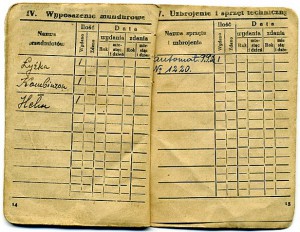 IV. Wyposażenie mundurowe
Nazwa
mundurów:
Ilość
Data
Wydano
Zdano
wydania
zdania
Rok
mie-
siąc
i dzień
Rok
mie-
siąc
i dzień
Łyżka 1
Kombinezon 1
Hełm 1
14
V. Uzbrojenie i sprzęt techniczny
Nazwa sprzętu
i uzbrojenia:
Ilość
Data
Wydano
Zdano
wydania
zdania
Rok
mie-
siąc
i dzień
Rok
mie-
siąc
i dzień
automat. 1
№ 1220.
15